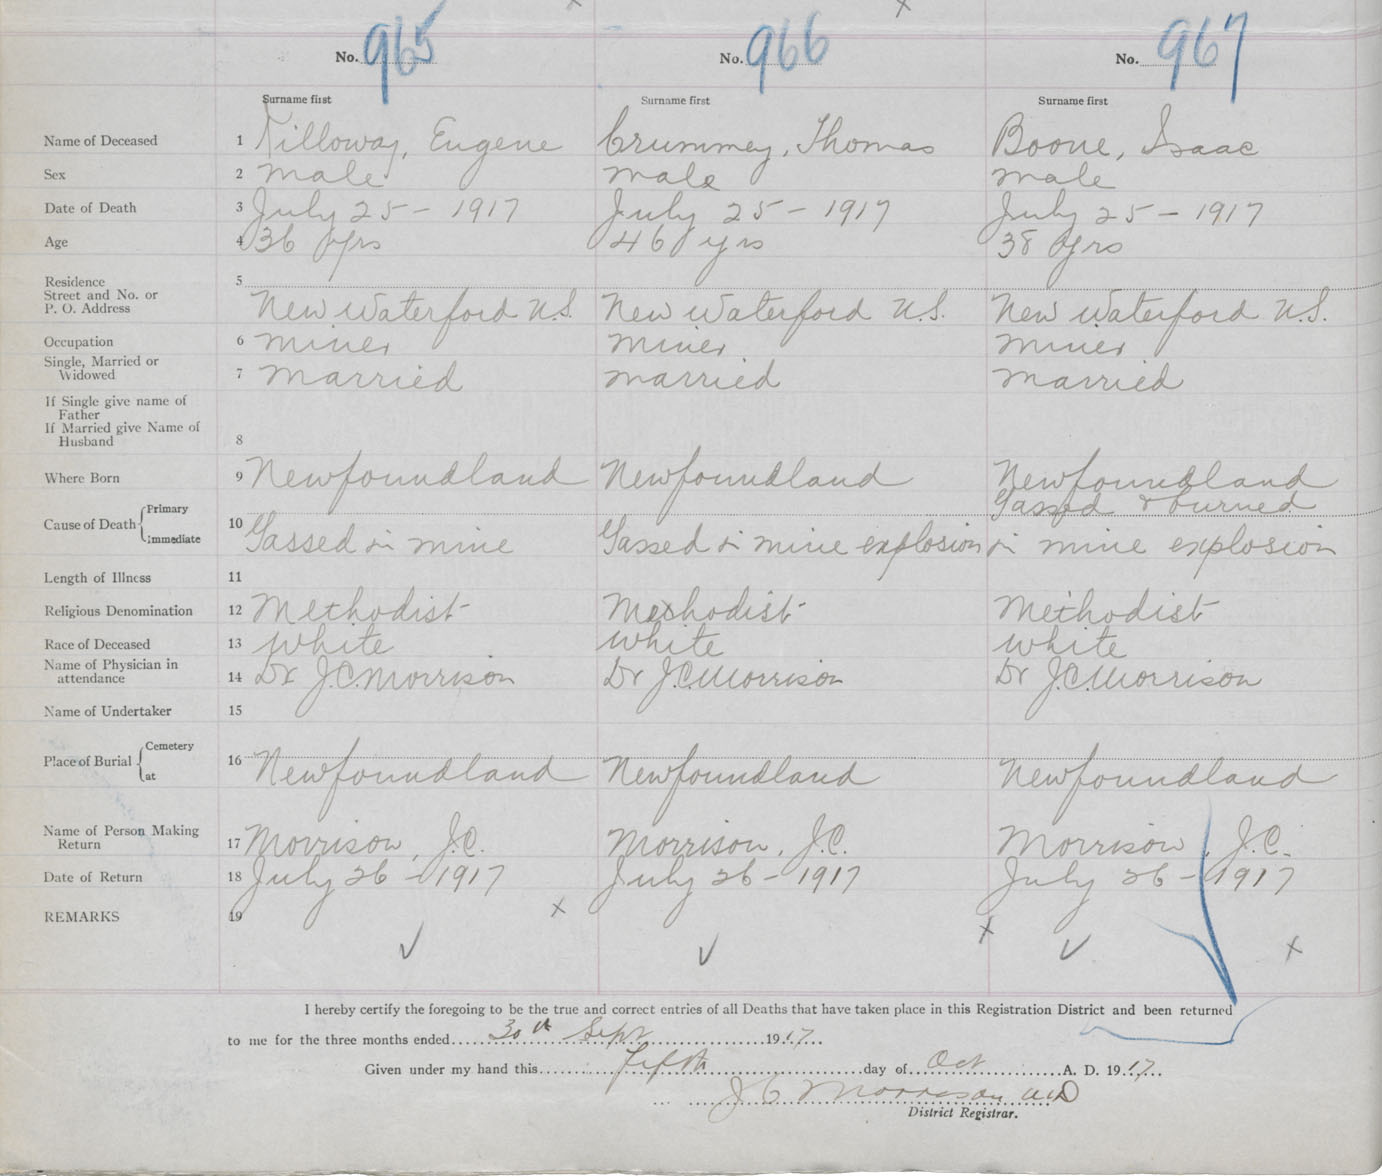 No. 965 No. 966 No. 967
Surname first Surname first Surname first
Name of Deceased 1 Killoway, Eugene Crummey, Thomas Boone, Isaac
Sex 2 male male male
Date of Death 3 July 25 - 1917 July 25 - 1917 July 25 - 1917
Age 4 36 yrs 46 yrs 38 yrs
Residence 5
Street and No. or
P. O. Address New Waterford N.S. New Waterford N.S. New Waterford N.S.
Occupation 6 miner miner miner
Single, Married or
Widowed 7 married married married
If Single give name of
Father
If Married give Name of
Husband 8
Where Born 9 Newfoundland Newfoundland Newfoundland
Cause of Death Primary Gassed & burned
Immediate 10 Gassed in mine Gassed in mine explosion in mine explosion
Length of Illness 11
Religious Denomination 12 Methodist Methodist Methodist
Race of Deceased 13 white white white
Name of Physician in
attendance 14 Dr J.C. Morrison Dr J.C. Morrison Dr J.C. Morrison
Name of Undertaker 15
Place of Burial Cemetery 16
at Newfoundland Newfoundland Newfoundland
Name of Person Making
Return 17 Morrison, J.C. Morrison, J.C. Morrison, J.C.
Date of Return 18 July 26 - 1917 July 26 - 1917 July 26 - 1917
REMARKS 19
I hereby certify the foregoing to be the true and correct entries of all Deaths that have taken place in this Registration District and been returned
to me for the three months ended 30th Sept 1917
Given under my hand this fifth day of Oct A. D. 1917
J C Morrison MD
District Registrar.